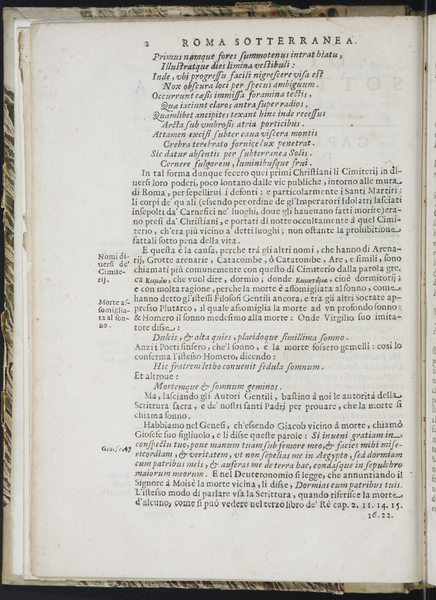 2 ROMA SOTTERRANEA.
Primus namque fores summotenus intrat hiatu,
Illustratque dies limina vestibuli:
Inde, vbi progressu facili nigrescere visa est
Nox obscura loci per specus ambiguum.
Occurrunt cæsis immissa foramina tectis,
Quæ iaciunt claros antra super radios,
Quamlibet ancipites texant hinc inde recessus
Arcta sub vmbrosis atria porticibus.
Attamen excisi subter caua viscera montis
Crebra terebrato fornice lux penetrat.
Sic datur absentis per subterranea Solis.
Cernere fulgorem, luminibusque frui.
In tal forma dunque fecero quei primi Christiani li Cimiterij in di-
uersi loro poderi, poco lontano dalle vie publiche, intorno alle mura
di Roma, per sepellirui i defonti; e particolarmente i Santi Martiri;
li corpi de' quali (essendo per ordine de gl'Imperatori Idolatri lasciati
insepolti da' Carnefici ne' luoghi, doue gli haueuano fatti morire) era-
no presi da' Christiani, e portati di notte occultamente à quel Cimi-
terio, ch'era più vicino a' detti luoghi; non ostante la prohibitione
fattali sotto pena della vita.
E questa è la causa, perche trà gli altri nomi, che hanno di Arena-
rij, Grotte arenarie, Catacombe, ò Catatombe, Are, e simili, sono
chiamati più comunemente con questo di Cimiterio dalla parola gre-
ca Κοιμάω, che vuol dire, dormio; donde Κοιμητήριον, cioè dormitorij;
e con molta ragione, perche la morte è assomigliata al sonno, come
hanno detto gl'istessi Filosofi Gentili ancora, e tra gli altri Socrate ap-
presso Plutarco, il quale assomiglia la morte ad vn profondo sonno:
& Homero il sonno medesimo alla morte: Onde Virgilio suo imita-
tore disse:
Dulcis, & alta quies, placidæque simillima somno.
Anzi i Poeti finsero, che'l sonno, e la morte fossero gemelli: così lo
conferma l'istesso Homero, dicendo:
Hic fratrem letho conuenit sedula somnum.
Et altroue:
Mortemque & somnum geminos.
Ma, lasciando gli Autori Gentili, bastino à noi le autorità della
Scrittura sacra, e de' nostri santi Padri per prouare, che la morte si
chiama sonno.
Habbiamo nel Genesi, ch'essendo Giacob vicino à morte, chiamò
Gioseffe suo figliuolo, e li disse queste parole: Si inueni gratiam in
conspectu tuo, pone manum tuam sub femore meo, & facies mihi mise-
ricordiam, & veritatem, vt non sepelias me in Aegypto, sed dormiam
cum patribus meis, & auferas me de terra hac, condasque in sepulchro
maiorum meorum. E nel Deuteronomio si legge, che annuntiando il
Signore à Moisè la morte vicina, li disse, Dormias cum patribus tuis.
L'istesso modo di parlare vsa la Scrittura, quando riferisce la morte
d'alcuno, come si può vedere nel terzo libro de' Rè cap. 2. 11. 14. 15.
16. 22.
Nomi di-
uersi de'
Cimite-
rij.
Morte as-
somiglia-
ta al son-
no.